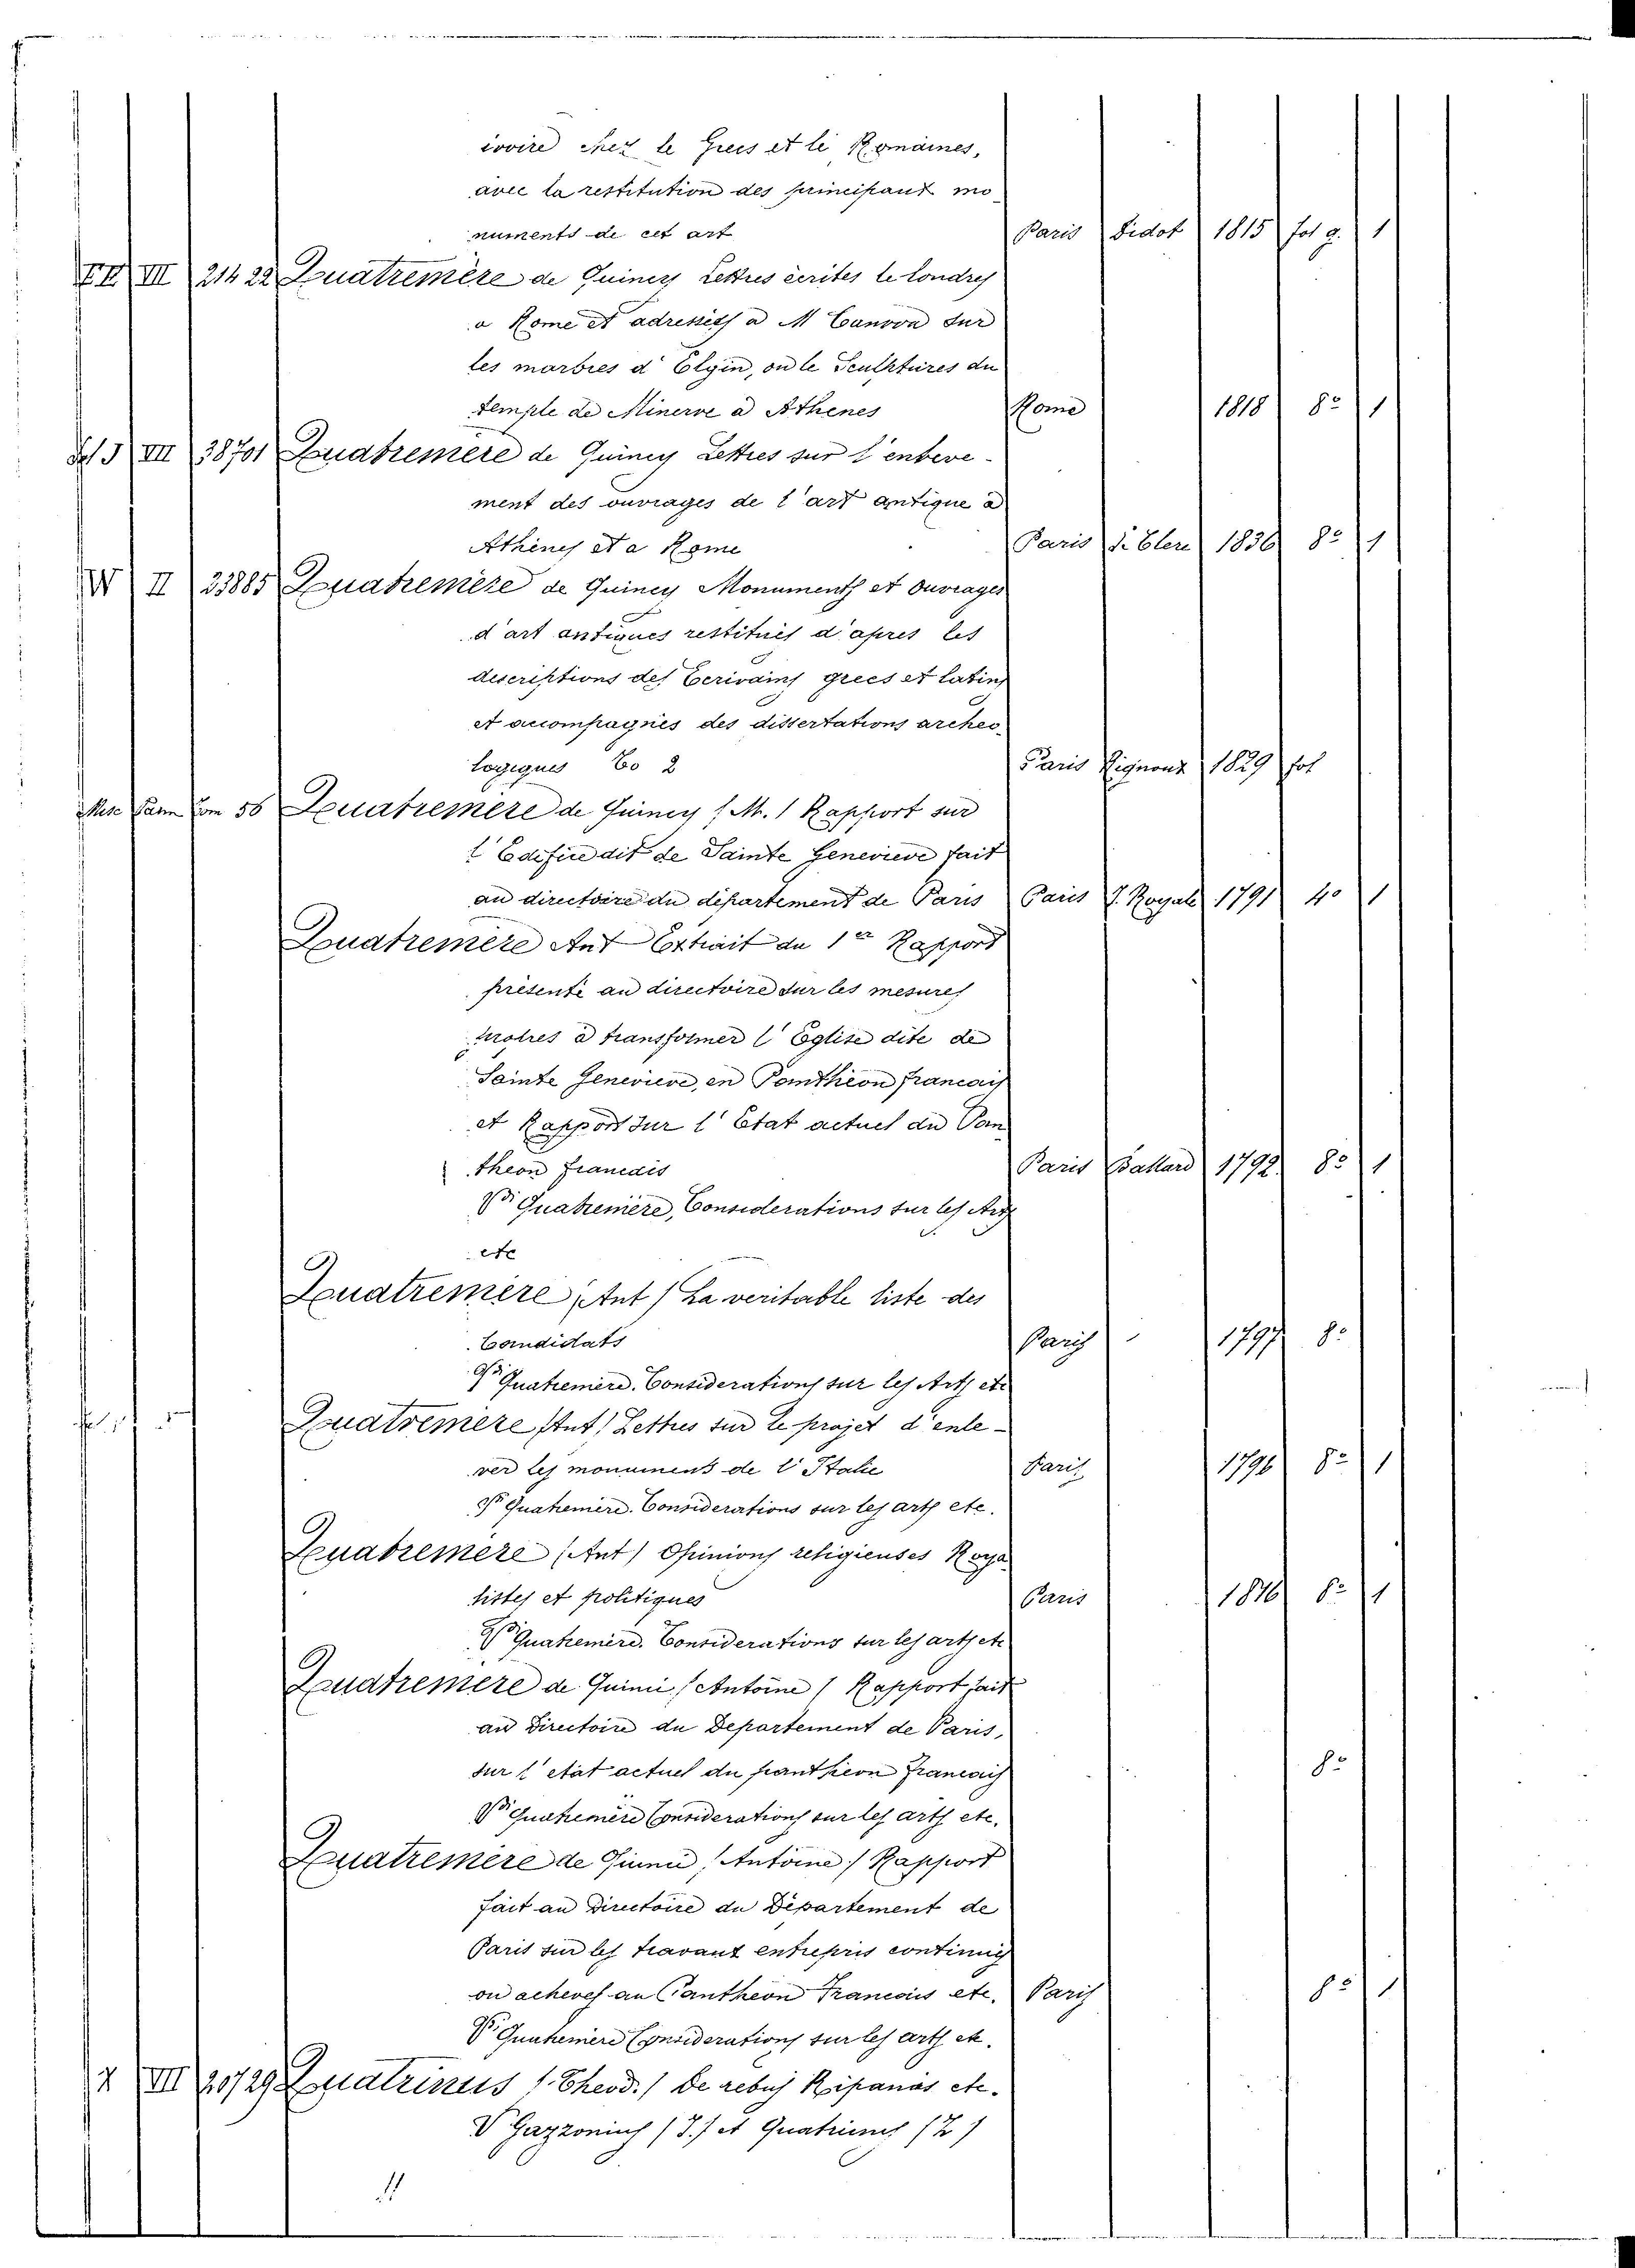 ivoire chez le Grecs et le Romaines,
avec la restitution des principaux mo
numents de cet art Paris Didot 1815 fol g. 1
III 214 22 Quatremère de Quincy Lettres écrites de londres
a Rome et adressées a M Canova sur
les marbres d'Elgin, ou le Sculptures du
temple de Minerve a Athenes Rome 1818 8º 1
J VIII 38701 Quatremere de Quincy Lettres sur l'enleve-
ment des ouvrages de l'art antique a
Athènes et a Rome Paris 1836 8º 1
W II 23885 Quatremère de Quincy Monuments et ouvrages
d'art antiques restitués d'apres les
descriptions des Ecrivains grecs et latins
et accompagnés des dissertations archeo
logiques To 2 Paris Rignoux 1829 fol
Misc Com 56 Quatremère de Quincy (M.) Rapport sur
l'Edifice dit de Sainte Genevieve fait
au directoire du département de Paris Paris I. Royale 1791 4º 1
Quatremère Ant Extrait du 1er Rapport
présenté au directoire sur les mesures
propres a transformer l'Eglise dite de
Sainte Genevieve, en Panthéon francais
et Rapport sur l'Etat actuel du Pan
theon francais Paris Ballard 1792 8º 1
Vdi Quatremère, Considerations sur les Arts
etc
Quatremère (Ant) La veritable liste des
Candidats Paris 1797 8º
Vdi Quatremère. Considerations sur les Arts etc
Quatremère (Ant) Lettres sur le projet d'enle-
ver les monumens de l'Italie Paris 1796 8º 1
Vdi Quatremère. Considerations sur les arts etc.
Quatremère (Ant) Opinions religieuses Roya
listes et politiques Paris 1816 8º 1
Vdi Quatremère. Considerations sur les arts etc
Quatremère de Quinci (Antoine) Rapport fait
au Directoire du Departement de Paris,
sur l'état actuel du pantheon Francais 8º
Vdi Quatremère Considerations sur les arts etc.
Quatremère de Quinci (Antoine) Rapport
fait au Directoire du Département de
Paris sur les travaux entrepris continués
ou achevés au Panthéon Francois etc. Paris 8º 1
Vdi Quatremère Considerations sur les arts etc.
X VIII 20729 Quatrinus (Theod.) De rebus Ripanis etc.
V Gazzonius (J.) et Quatrinus (T)